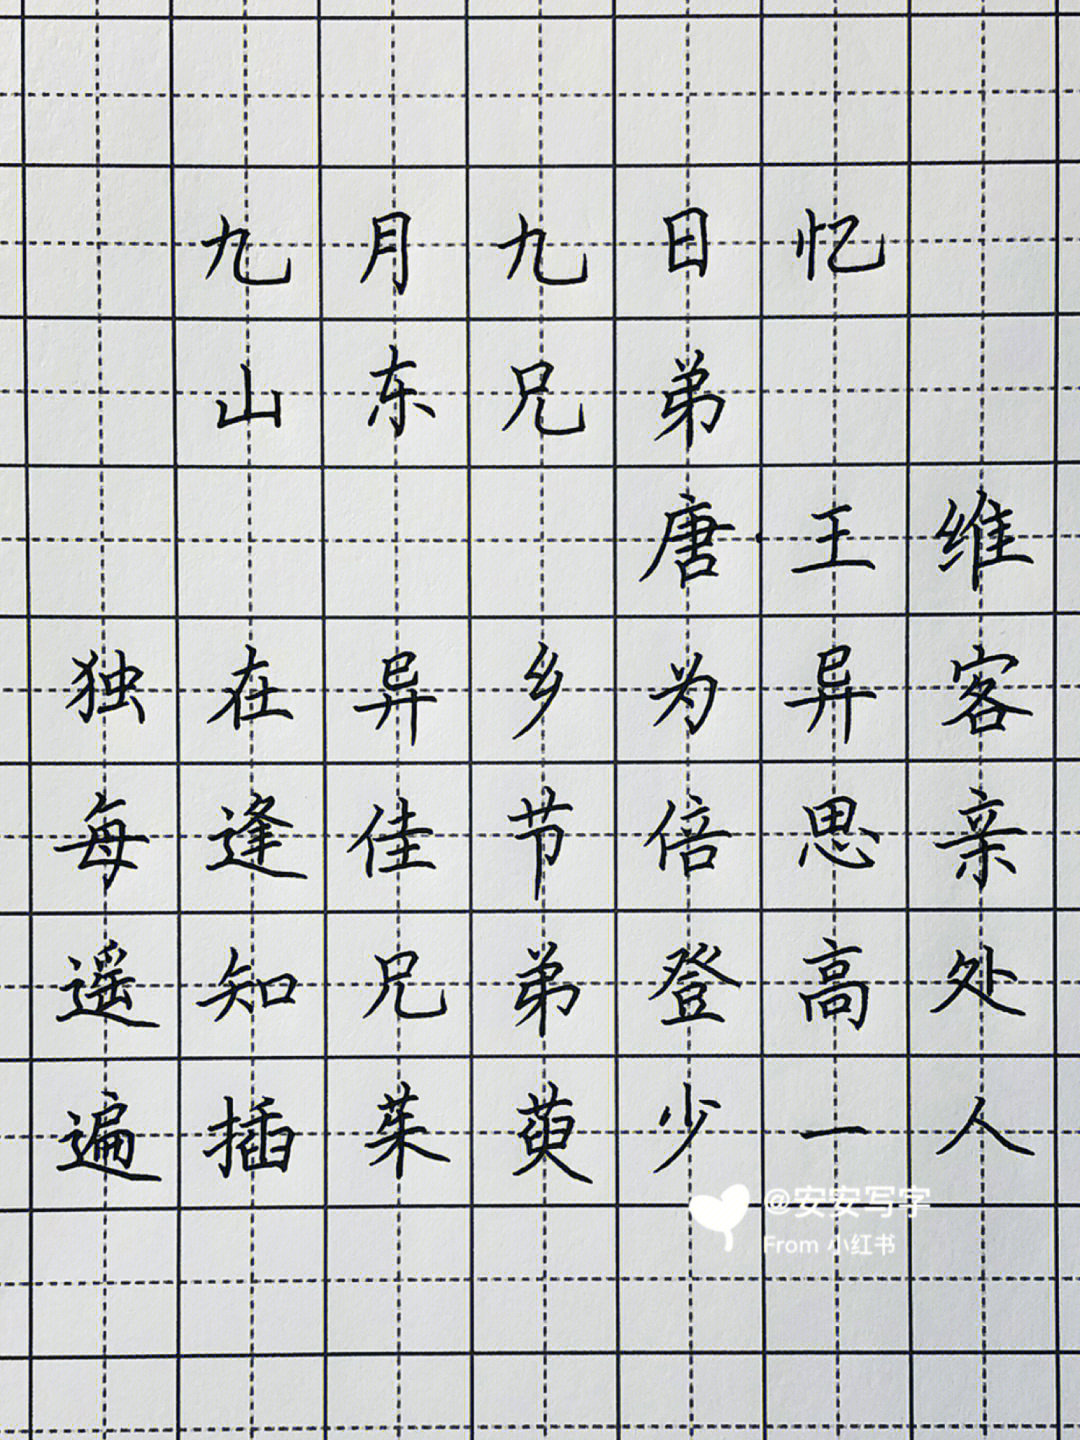 九月九日忆
山东兄弟
唐·王维
独在异乡为异客
每逢佳节倍思亲
遥知兄弟登高处
遍插茱萸少一人
@安安写字
From 小红书